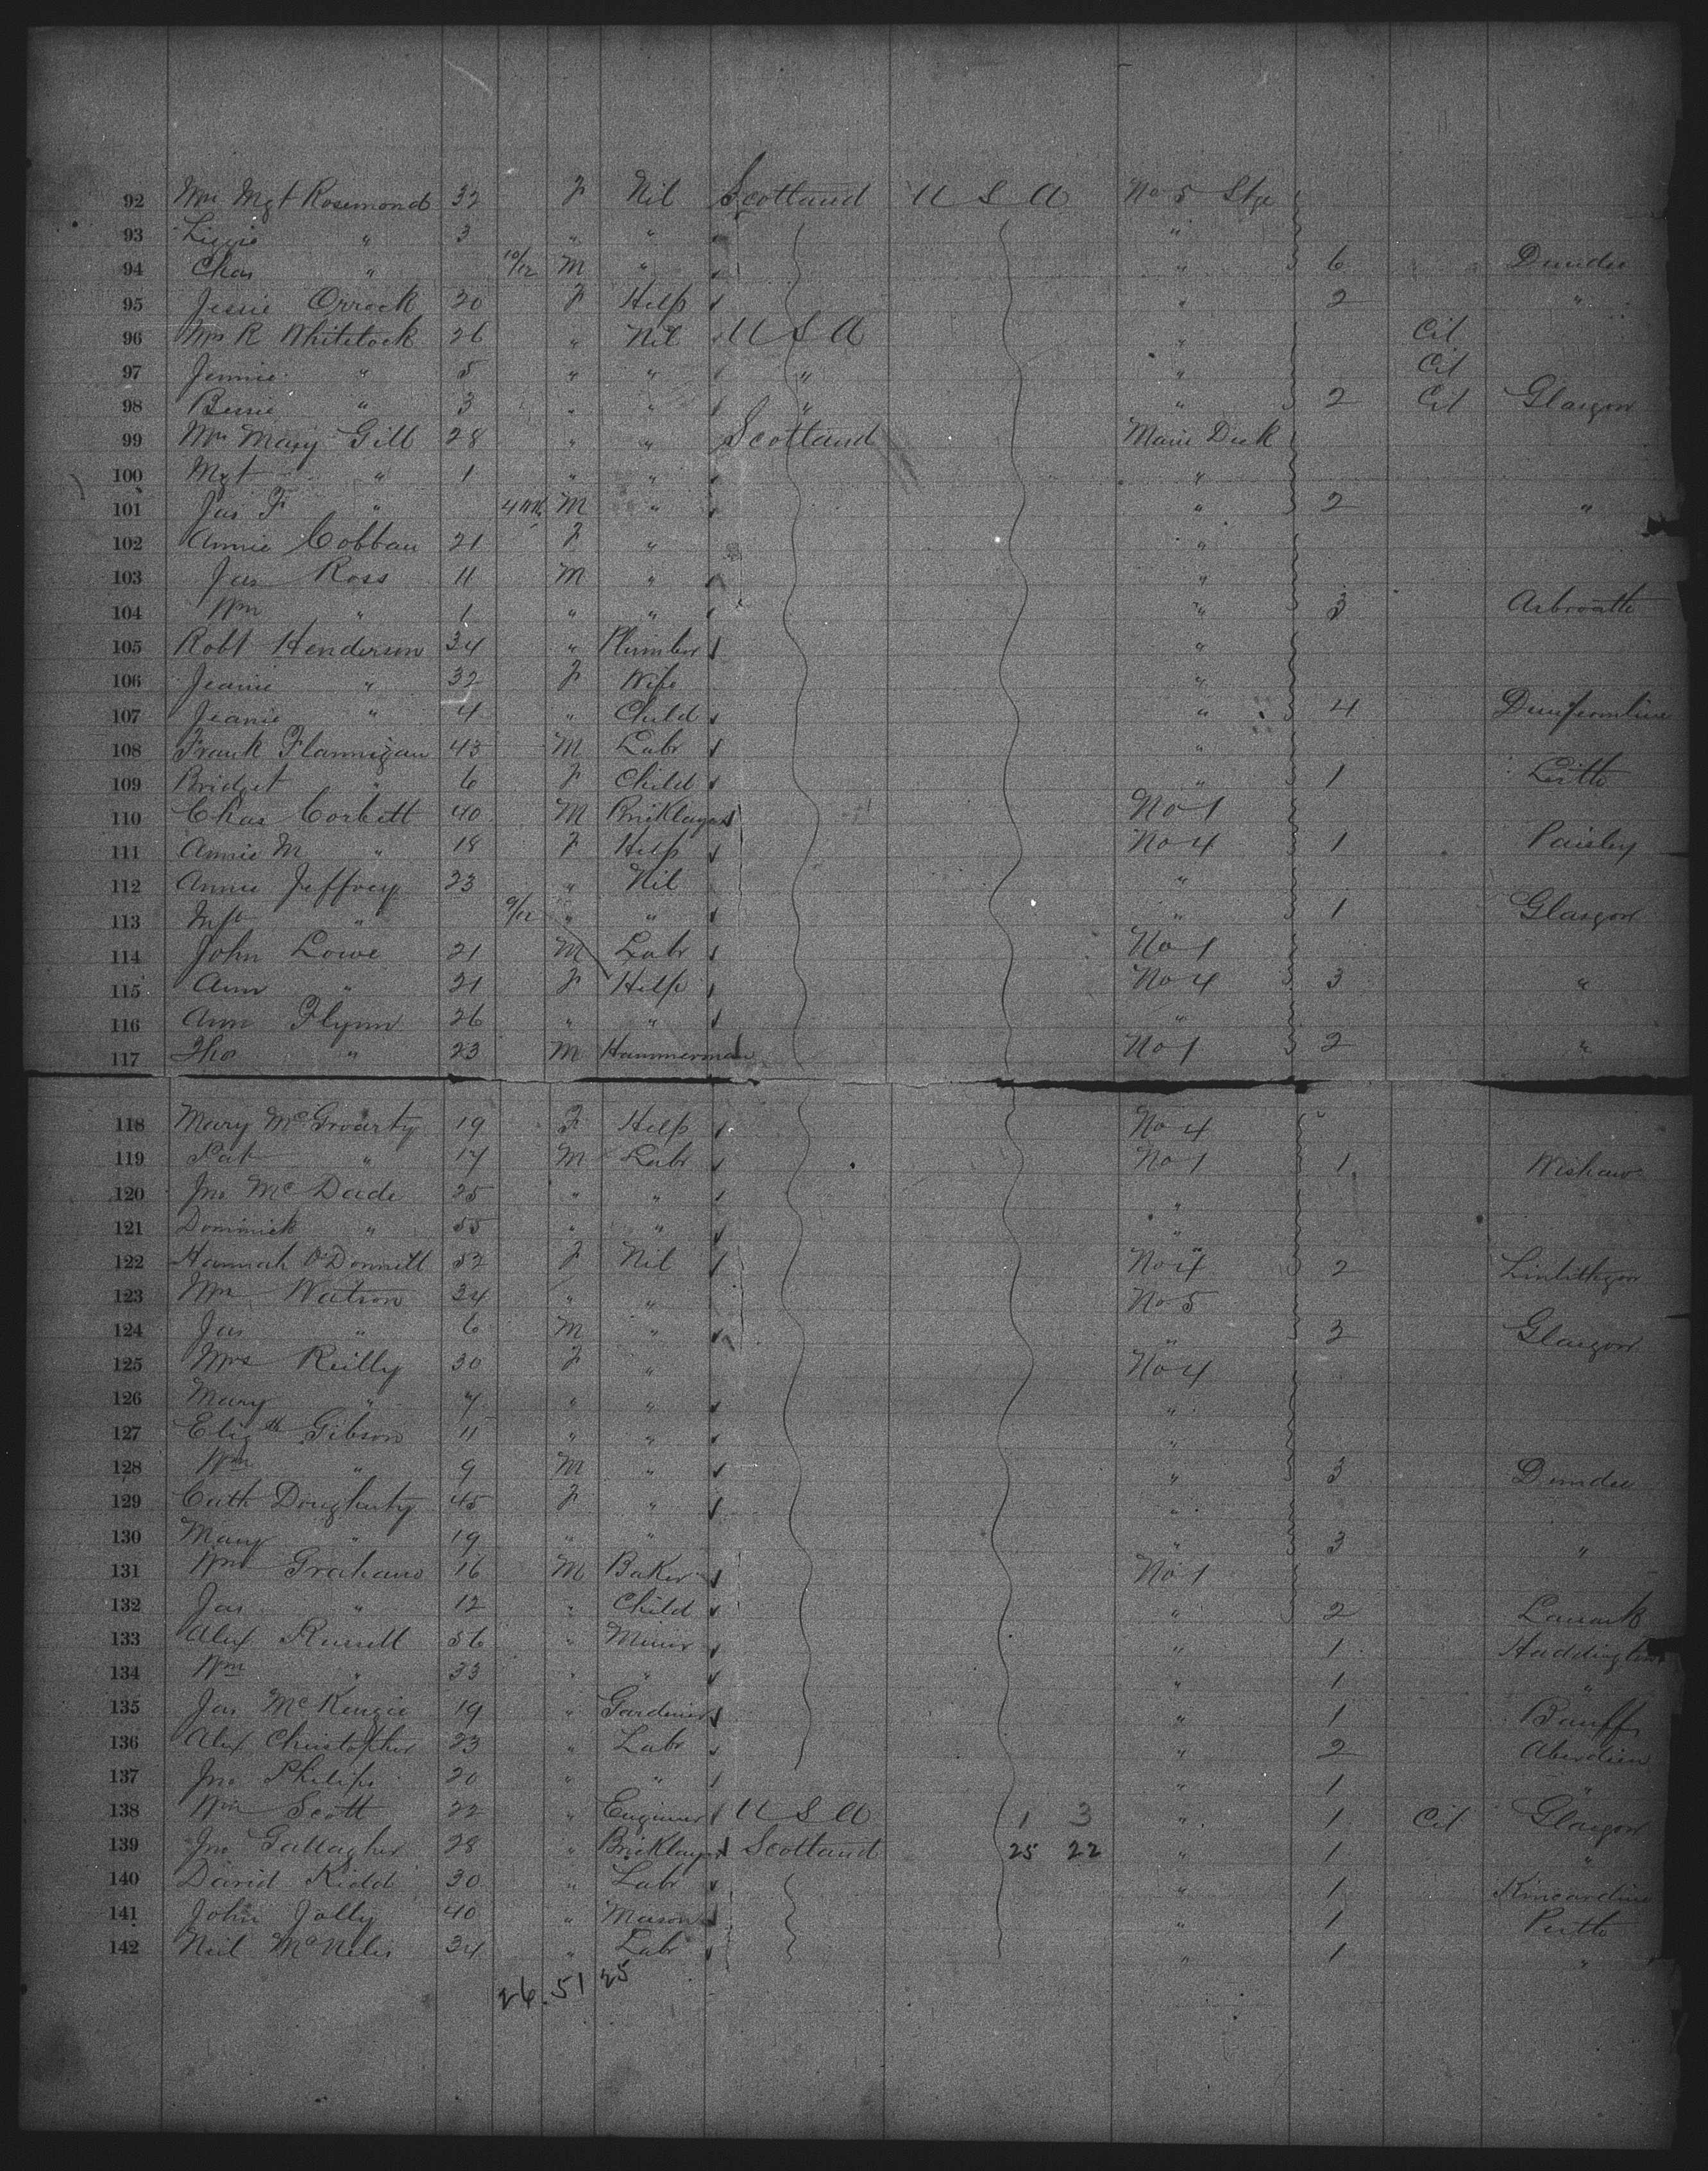 92 Mrs Mgt Rosemond 32 F Nil Scotland U S A No 5 Stge
93 Lizzie " 3 " " "
94 Chas " 10/12 M " " 6 Dundee
95 Jessie Orrock 20 F Help " 2 "
96 Mrs R Whitelock 26 " Nil U S A " Cit
97 Jennie " 5 " " " " Cit
98 Bessie " 3 " " " " 2 Cit Glasgow
99 Mrs Mary Gill 28 " " Scotland Main Deck
100 Mgt " 1 " " "
101 Jas F " 4 M " " 2 "
102 Annie Cobban 21 F " "
103 Jas Ross 11 M " "
104 Wm " 1 " " " 3 Arbroath
105 Robt Henderson 34 " Plumber "
106 Jeanie " 32 F Wife "
107 Jeanie " 4 " Child " 4 Dunfermline
108 Frank Flannigan 43 M Labr "
109 Bridget " 6 F Child " 1 Leith
110 Chas Corbett 40 M Bricklayer No 1
111 Annie M " 18 F Help No 4 1 Paisley
112 Annie Jeffrey 23 " Nil "
113 Inft " 9/12 " " " 1 Glasgow
114 John Lowe 21 M Labr No 1
115 Ann " 21 F Help No 4 3 "
116 Ann Flynn 26 " " "
117 Tho " 23 M Hammerman No 1 2 "
118 Mary McGroarty 19 F Help No 4
119 Pat " 17 M Labr No 1 1 Wishaw
120 Jno McDade 25 " " "
121 Dominick " 55 " " "
122 Hannah O'Donnell 52 F Nil No 4 2 Linlithgow
123 Watson 34 " " No 5
124 Jas " 6 M " " 3 Glasgow
125 Mrs Reilly 30 F " No 4
126 Mary " 7 " " "
127 Elizth Gibson 11 " " "
128 Wm " 9 M " " 3 Dundee
129 Cath Dougherty 45 F " "
130 Mary " 19 " " " 3 "
131 Wm Graham 16 M Baker No 1
132 Jas " 12 " Child " 2 Lanark
133 Alex Russell 56 " Miner " 1 Haddington
134 Wm " 33 " " " 1 "
135 Jas McKenzie 19 " Gardiner " 1 Banff
136 Alex Christopher 23 " Labr " 2 Aberdeen
137 Jno Philips 20 " " " 1 "
138 Wm Scott 22 " Engineer U S A 1 3 " 1 Cit Glasgow
139 Jno Gallagher 28 " Bricklayer Scotland 25 22 " 1 "
140 David Kidd 30 " Labr " 1 Kincardine
141 John Jolly 40 " Mason " 1 Perth
142 Neil McNelis 34 " Labr " 1 "
26 . 51 25